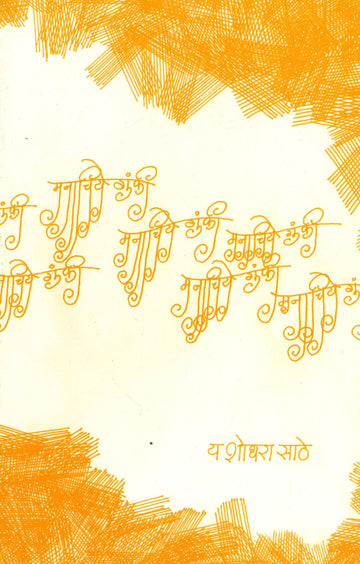 गुंफी मनाचिये गुंफी
मनाचिये गुंफी मनाचिये गुंफी
नाचिये गुंफी मनाचिये गुंफी मनाचिये गुं
यशोधरा साठे